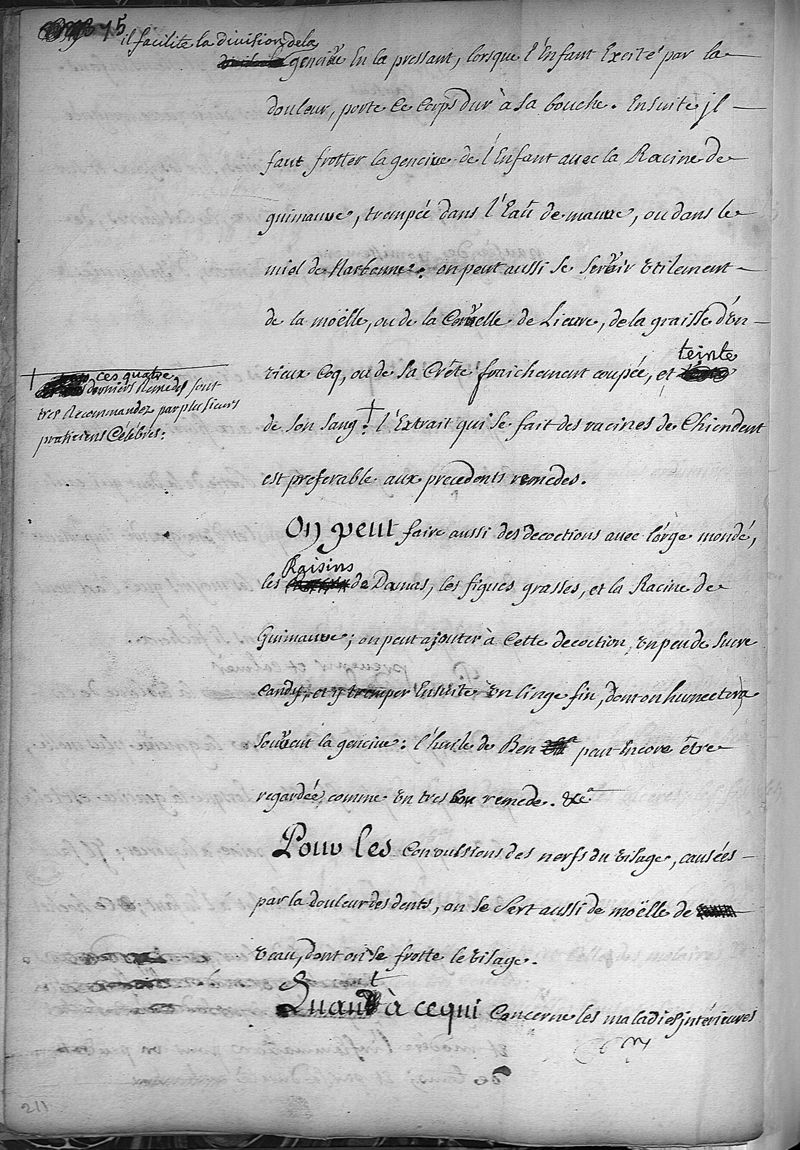 15
il facilite la division de la
gencive En la pressant, lorsque l'Enfant Excité par la
douleur, porte Ce Corps dur à sa bouche. Ensuite jl
faut frotter la gencive de l'Enfant avec la Racine de
guimauve, trempée dans l'Eau de mauve, ou dans le
miel de Narbonne. on peut aussi se servir utilement
de la moëlle, ou de la Cervelle de Lievre, de la graisse d'un
vieux Coq, ou de sa Crête fraichement coupée, et teinte
de son sang † l'Extrait qui se fait des racines de Chiendent
est preferable aux precedents remedes.
† ces quatre
derniers Remedes sont
tres Recommandez par plusieurs
praticiens Célébres:
On peut faire aussi des decoctions avec l'orge mondé,
les Raisins de Damas, les figues grasses, et la Racine de
Guimauve; on peut ajouter à Cette decoction, un peu de sucre
Candy, et y tremper Ensuite un linge fin, dont on humectera
souvent la gencive: l'huile de Ben peut Encore être
regardée, comme un tres bon remede. &ca
Pour les Convulsions des nerfs du visage, causées
par la douleur des dents, on se Sert aussi de moëlle de
veau, dont on se frotte le visage.
Quant à ce qui Concerne les maladies intérieures
de
211